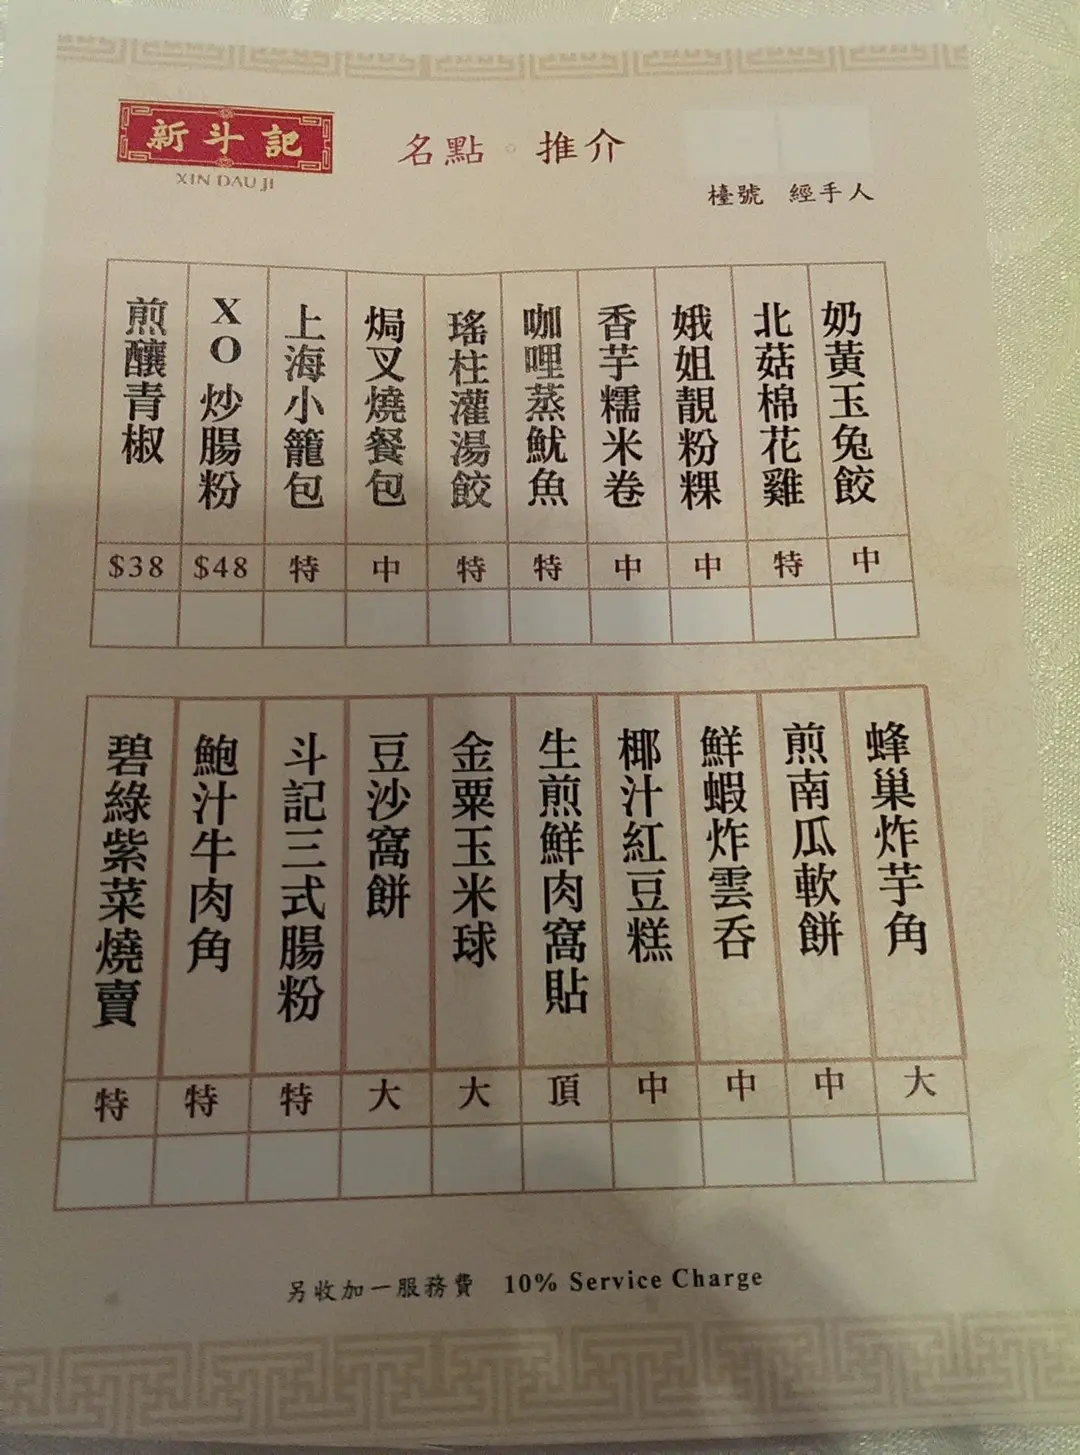 新斗記
XIN DAU JI
名點。推介
檯號 經手人
奶黃玉兔餃 中
北菇棉花雞 特
娥姐靚粉粿 中
香芋糯米卷 中
咖哩蒸魷魚 特
瑤柱灌湯餃 特
焗叉燒餐包 中
上海小籠包 特
XO炒腸粉 $48
煎釀青椒 $38
蜂巢炸芋角 大
煎南瓜軟餅 中
鮮蝦炸雲吞 中
椰汁紅豆糕 中
生煎鮮肉窩貼 頂
金粟玉米球 大
豆沙窩餅 大
斗記三式腸粉 特
鮑汁牛肉角 特
碧綠紫菜燒賣 特
另收加一服務費 10% Service Charge